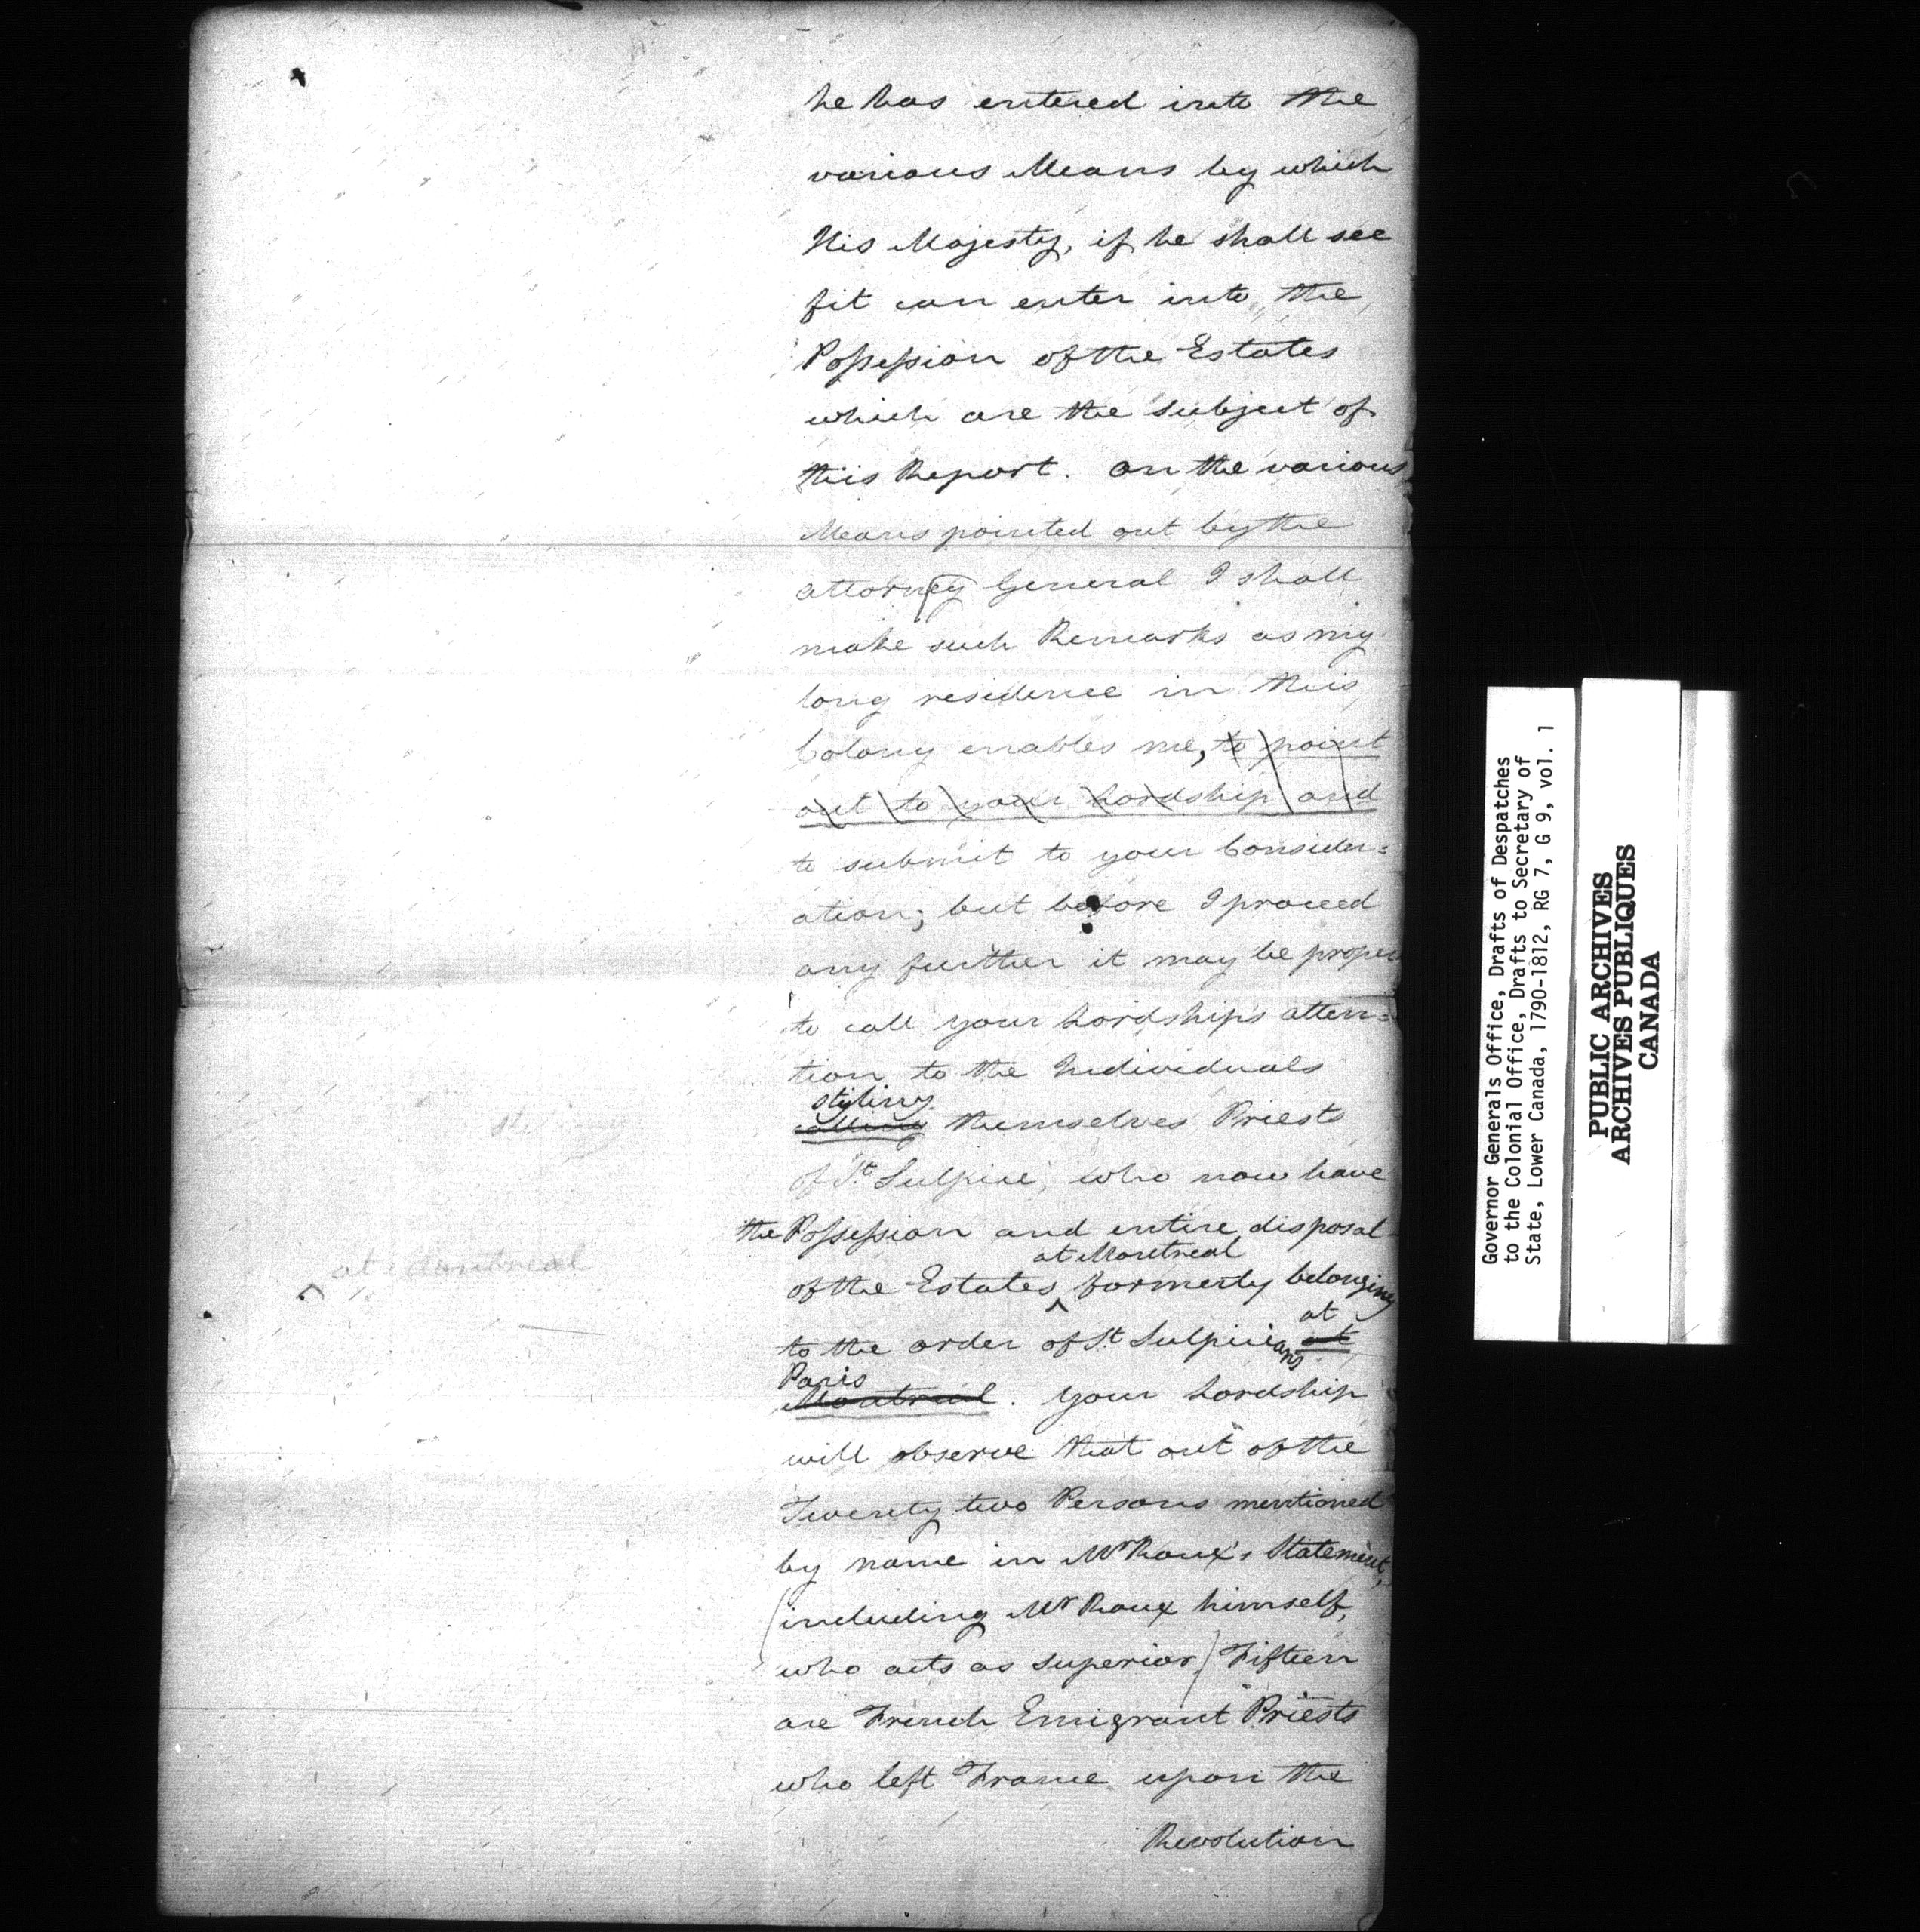 he has entered into the
various Means by which
His Majesty, if he shall see
fit can enter into the
Possession of the Estates
which are the subject of
this Report. on the various
Means pointed out by the
attorney General I shall
make such Remarks as my
long residence in this
Colony enables me, to point
out to your Lordship and
to submit to your Consider=
ation; but before I proceed
any further it may be proper
to call your Lordship's atten=
tion to the Individuals
styling
calling themselves Priests
of St. Sulpice, who now have
the Possession and entire disposal
at Montreal
at Montreal
of the Estates ^ formerly belonging
at
to the order of St. Sulpicians at
Paris
Montreal. Your Lordship
will observe that out of the
Twenty two Persons mentioned
by name in Mr Roux's Statement,
(including Mr Roux himself,
who acts as superior,) Fifteen
are French Emigrant Priests
who left France upon the
Revolution
Governor Generals Office, Drafts of Despatches
to the Colonial Office, Drafts to Secretary of
State, Lower Canada, 1790-1812, RG 7, G 9, vol. 1
PUBLIC ARCHIVES
ARCHIVES PUBLIQUES
CANADA